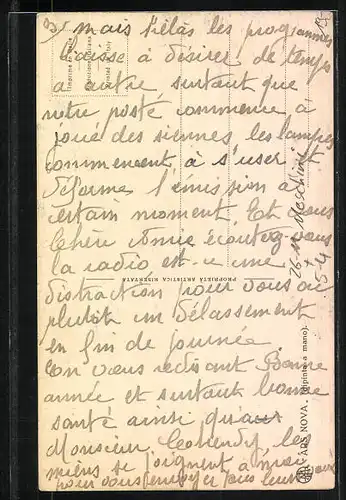 3) mais hélas les programmes
laisse à désirer de temps
a autre surtout que
notre poste commence à
joué des siennes les lampes
commencent à s'user et
déforme l'émission a
certain moment. Et vous
Chère Amie écoutez-vous
la radio est-ce une
distraction pour vous ou
plutôt un délassement
en fin de journée.
En vous redisant Bonne
année et surtout bonne
santé ainsi qu'a
Monsieur les
miens se joignent à moi
pour vous envoyer tous leurs
PROPRIETÀ ARTISTICA RISERVATA
ARS NOVA. (dipinta a mano).